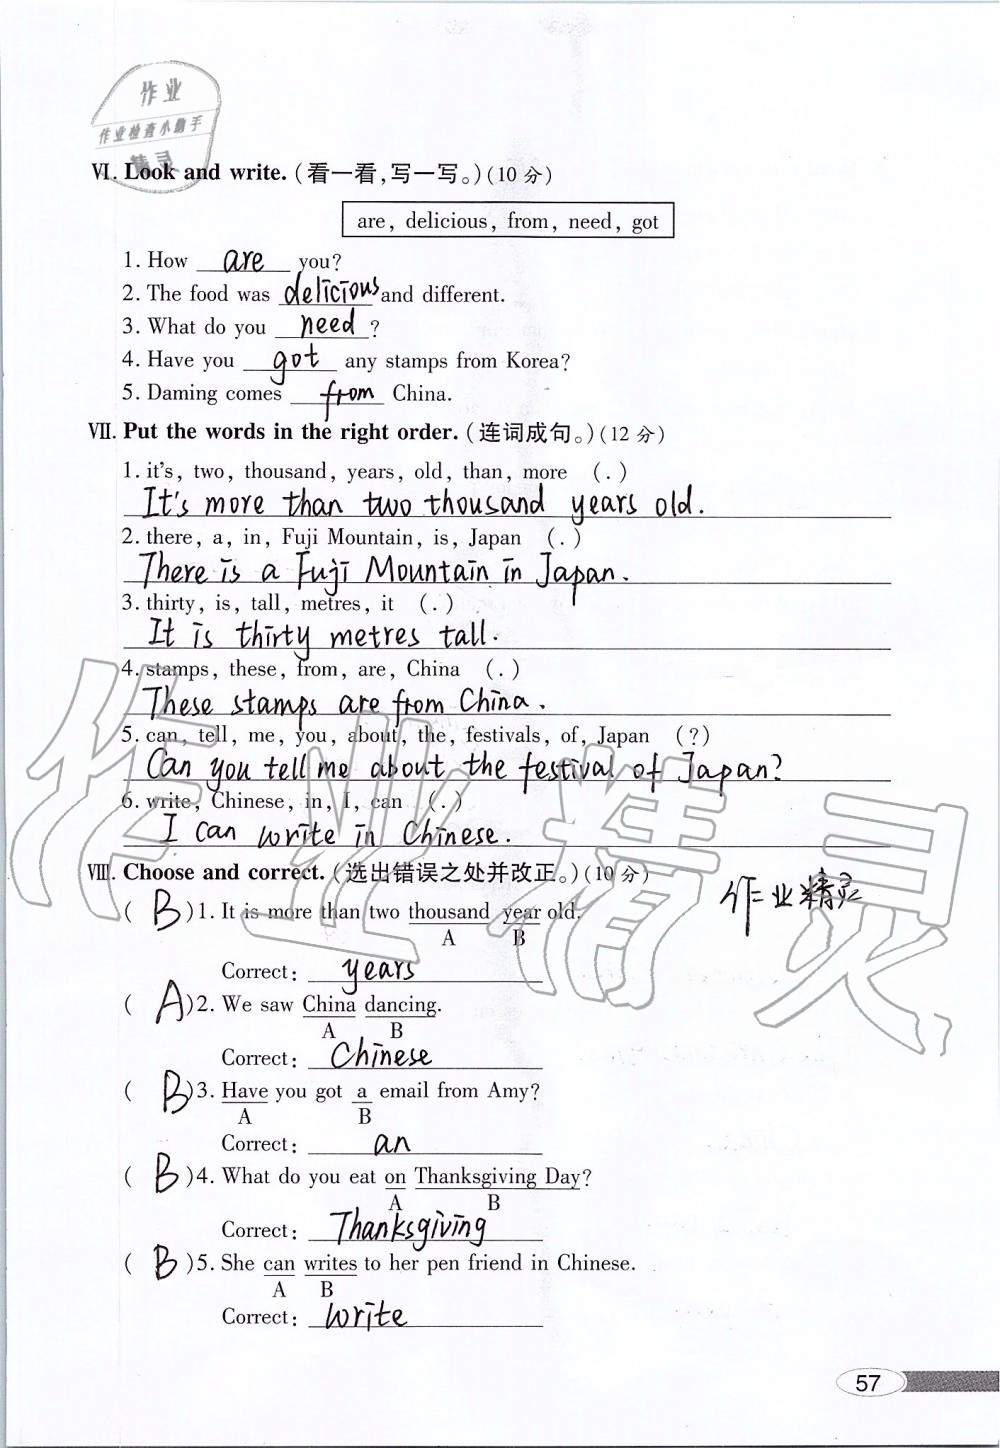 作业
作业检查小助手
精灵
Ⅵ. Look and write.(看一看,写一写。)(10分)
are, delicious, from, need, got
1. How are you?
2. The food was delicious and different.
3. What do you need ?
4. Have you got any stamps from Korea?
5. Daming comes from China.
Ⅶ. Put the words in the right order.(连词成句。)(12分)
1. it's, two, thousand, years, old, than, more (.)
It's more than two thousand years old.
2. there, a, in, Fuji Mountain, is, Japan (.)
There is a Fuji Mountain in Japan.
3. thirty, is, tall, metres, it (.)
It is thirty metres tall.
4. stamps, these, from, are, China (.)
These stamps are from China.
5. can, tell, me, you, about, the, festivals, of, Japan (?)
Can you tell me about the festival of Japan?
6. write, Chinese, in, I, can (.)
I can write in Chinese.
作业精灵
Ⅷ. Choose and correct.(选出错误之处并改正。)(10分)
作业精灵
( B )1. It is more than two thousand year old.
A B
Correct: years
( A )2. We saw China dancing.
A B
Correct: Chinese
( B )3. Have you got a email from Amy?
A B
Correct: an
( B )4. What do you eat on Thanksgiving Day?
A B
Correct: Thanksgiving
( B )5. She can writes to her pen friend in Chinese.
A B
Correct: write
57